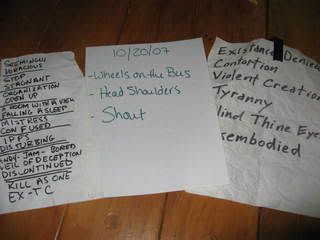 SEEMINGLY
VORACIOUS
STOP
STAGNANT
ORGANIZATION
OPEN UP
ROOM WITH A VIEW
FALLING ASLEEP
MISTRESS
CONFUSED
IPFO
DISTURBING
JAM - BORED
VEIL OF DECEPTION
DISCONTINUED
KILL AS ONE
EX-TC
10/20/07
- Wheels on the Bus
- Head Shoulders
- Shout
Existence Denied
Contortion
Violent Creation
Tyranny
Blind Thine Eyes